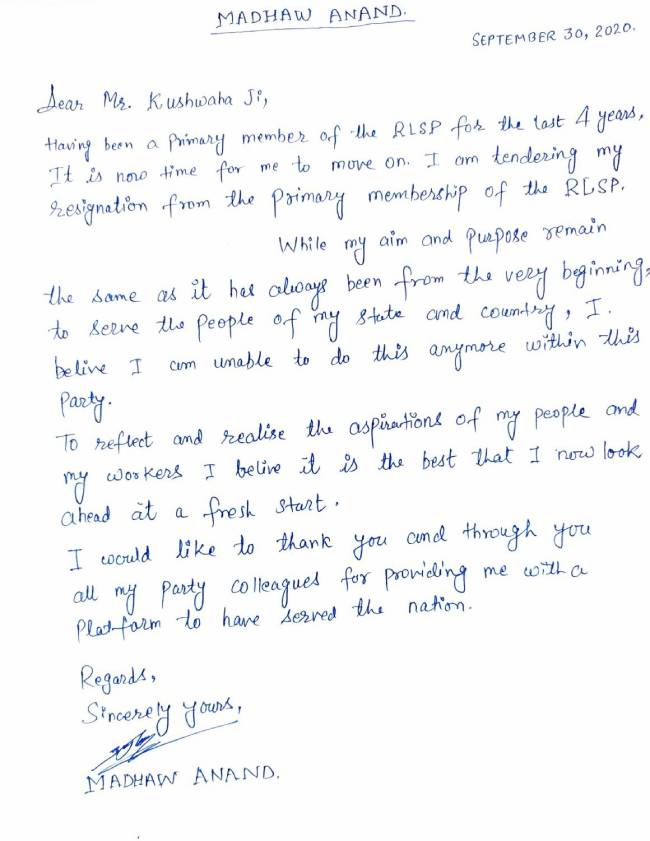 MADHAW ANAND.
SEPTEMBER 30, 2020.
Dear Mr. Kushwaha Ji,
Having been a Primary member of the RLSP for the last 4 years,
It is now time for me to move on. I am tendering my
resignation from the Primary membership of the RLSP.
While my aim and purpose remain
the same as it has always been from the very beginning,
to serve the people of my state and country, I.
belive I am unable to do this anymore within this
Party.
To reflect and realise the aspirations of my people and
my workers I belive it is the best that I now look
ahead at a fresh start.
I would like to thank you and through you
all my party colleagues for providing me with a
Platform to have served the nation.
Regards,
Sincerely yours,
MADHAW ANAND.